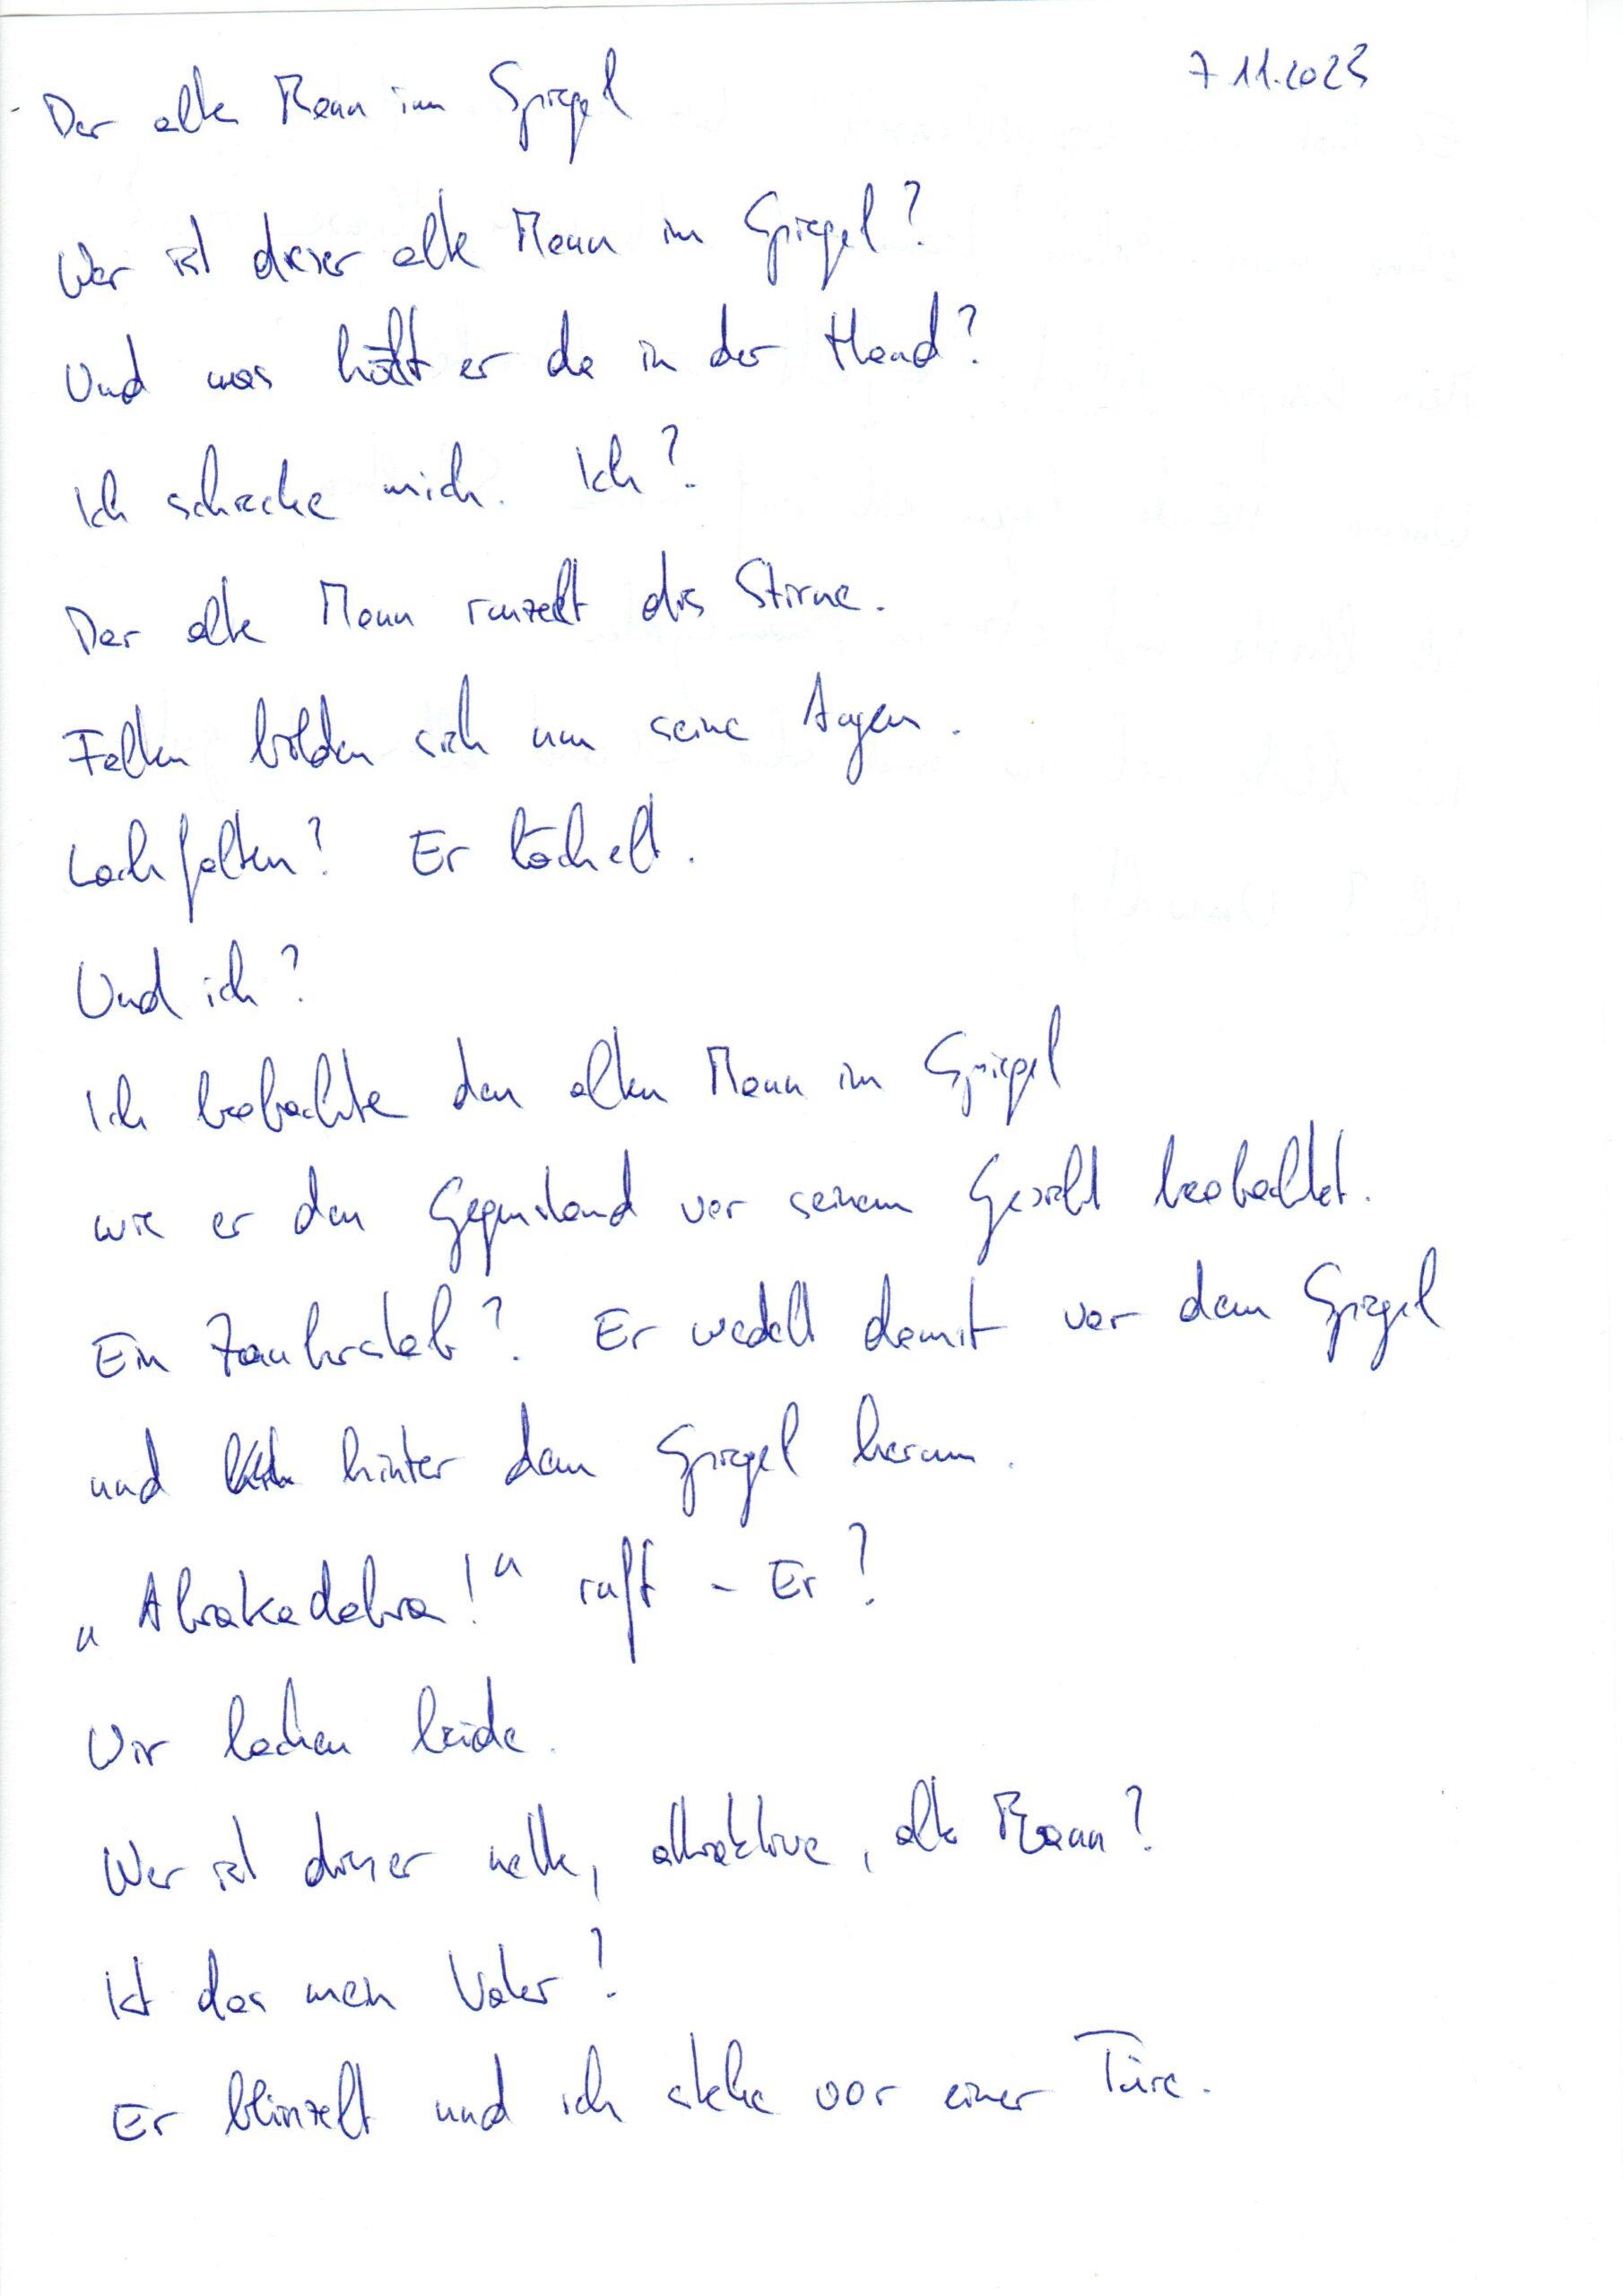 7 11.2023
Der alte Mann im Spiegel
Wer ist dieser alte Mann im Spiegel?
Und was hält er da in der Hand?
Ich schrecke mich. Ich?
Der alte Mann runzelt die Stirne.
Falten bilden sich um seine Augen.
Lachfalten? Er lächelt.
Und ich?
Ich beobachte den alten Mann im Spiegel
wie er den Gegenstand vor seinem Gesicht beobachtet.
Ein Zauberstab? Er wedelt damit vor dem Spiegel
und hinter dem Spiegel herum.
„Abrakadabra!“ ruft - Er?
Wir lachen beide.
Wer ist dieser nette, attraktive, alte Mann?
Ist das mein Vater?
Er blinzelt und ich stehe vor einer Türe.